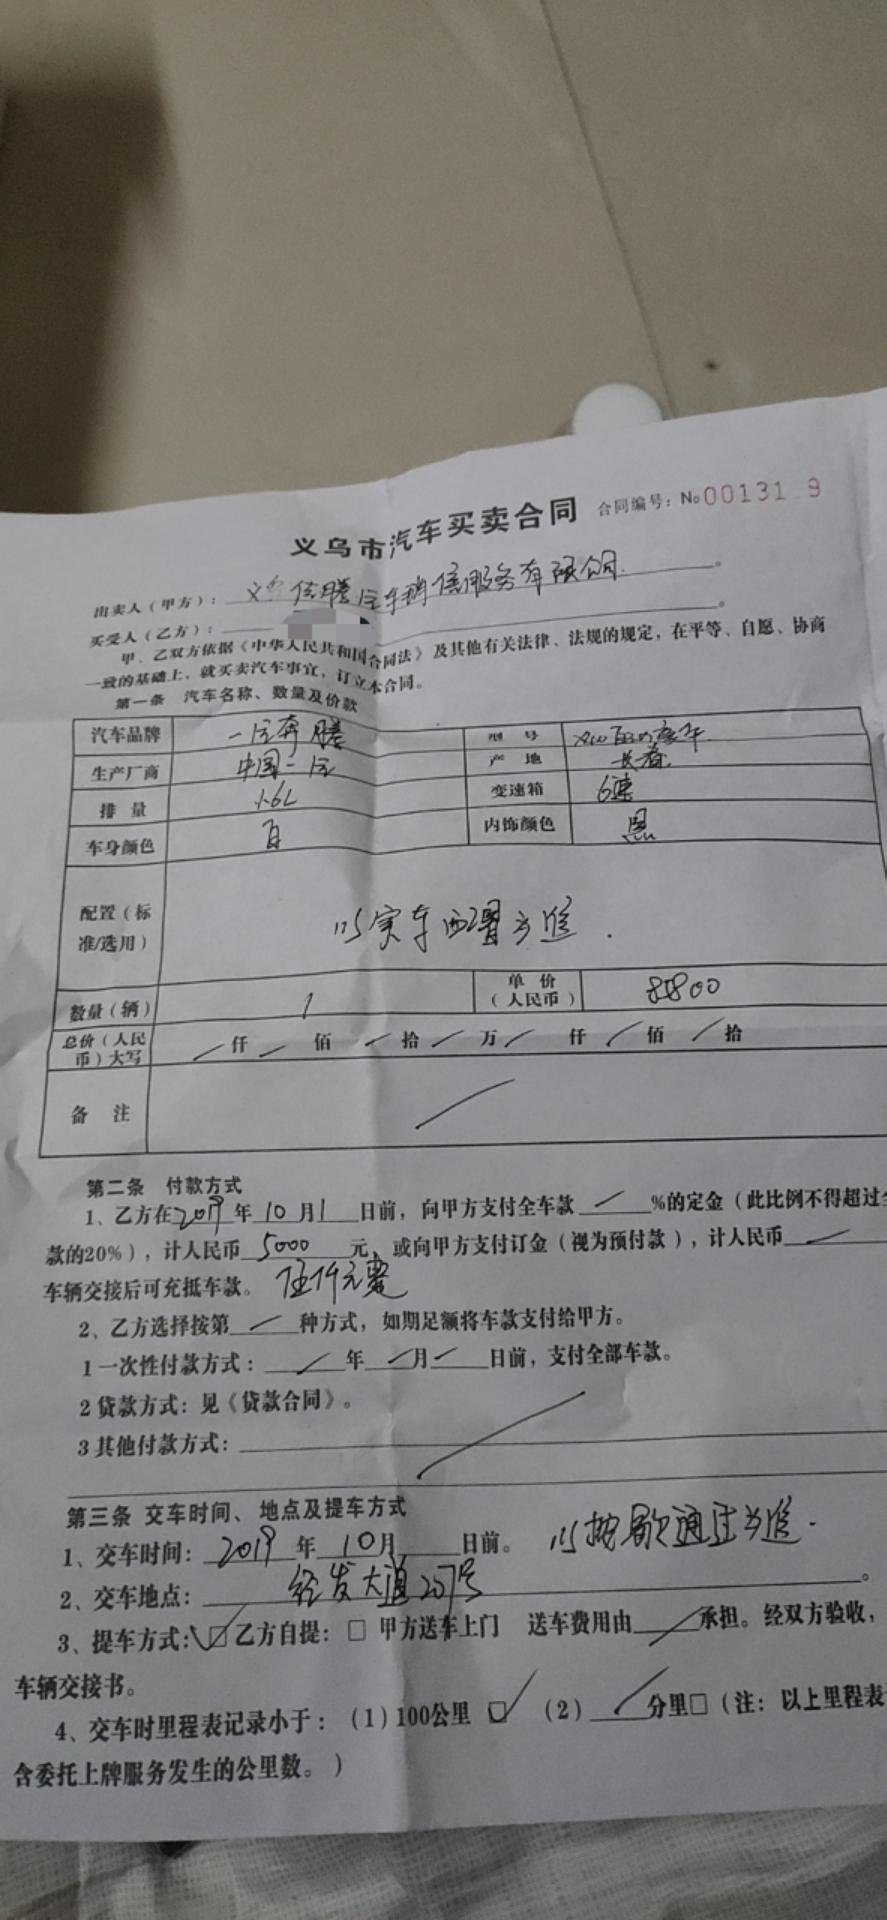 义乌市汽车买卖合同 合同编号：No00131 9
出卖人（甲方）：义乌 汽车销 服务有限公司。
买受人（乙方）：。
甲、乙双方依据《中华人民共和国合同法》及其他有关法律、法规的规定，在平等、自愿、协商
一致的基础上，就买卖汽车事宜，订立本合同。
第一条 汽车名称、数量及价款
汽车品牌 一汽奔腾 型号
生产厂商 中国一汽 产地 长春
排量 1.6L 变速箱 6速
车身颜色 白 内饰颜色 黑
配置（标
准/选用） 以实车配置为准.
数量（辆） 1 单价
（人民币） 88800
总价（人民
币）大写 仟 佰 拾 万 仟 佰 拾
备注
第二条 付款方式
1、乙方在2019年10月1日前，向甲方支付全车款 %的定金（此比例不得超过全
款的20%），计人民币5000元，或向甲方支付订金（视为预付款），计人民币
车辆交接后可充抵车款。 伍仟元
2、乙方选择按第 种方式，如期足额将车款支付给甲方。
1一次性付款方式： 年 月 日前，支付全部车款。
2贷款方式：见《贷款合同》。
3其他付款方式：
第三条 交车时间、地点及提车方式
1、交车时间：2019年10月 日前。 以 通过为准.
2、交车地点：经发大道207号。
3、提车方式：☑乙方自提：□ 甲方送车上门 送车费用由 承担。经双方验收，
车辆交接书。
4、交车时里程表记录小于：（1）100公里 ☑ （2） 分里□（注：以上里程表
含委托上牌服务发生的公里数。）